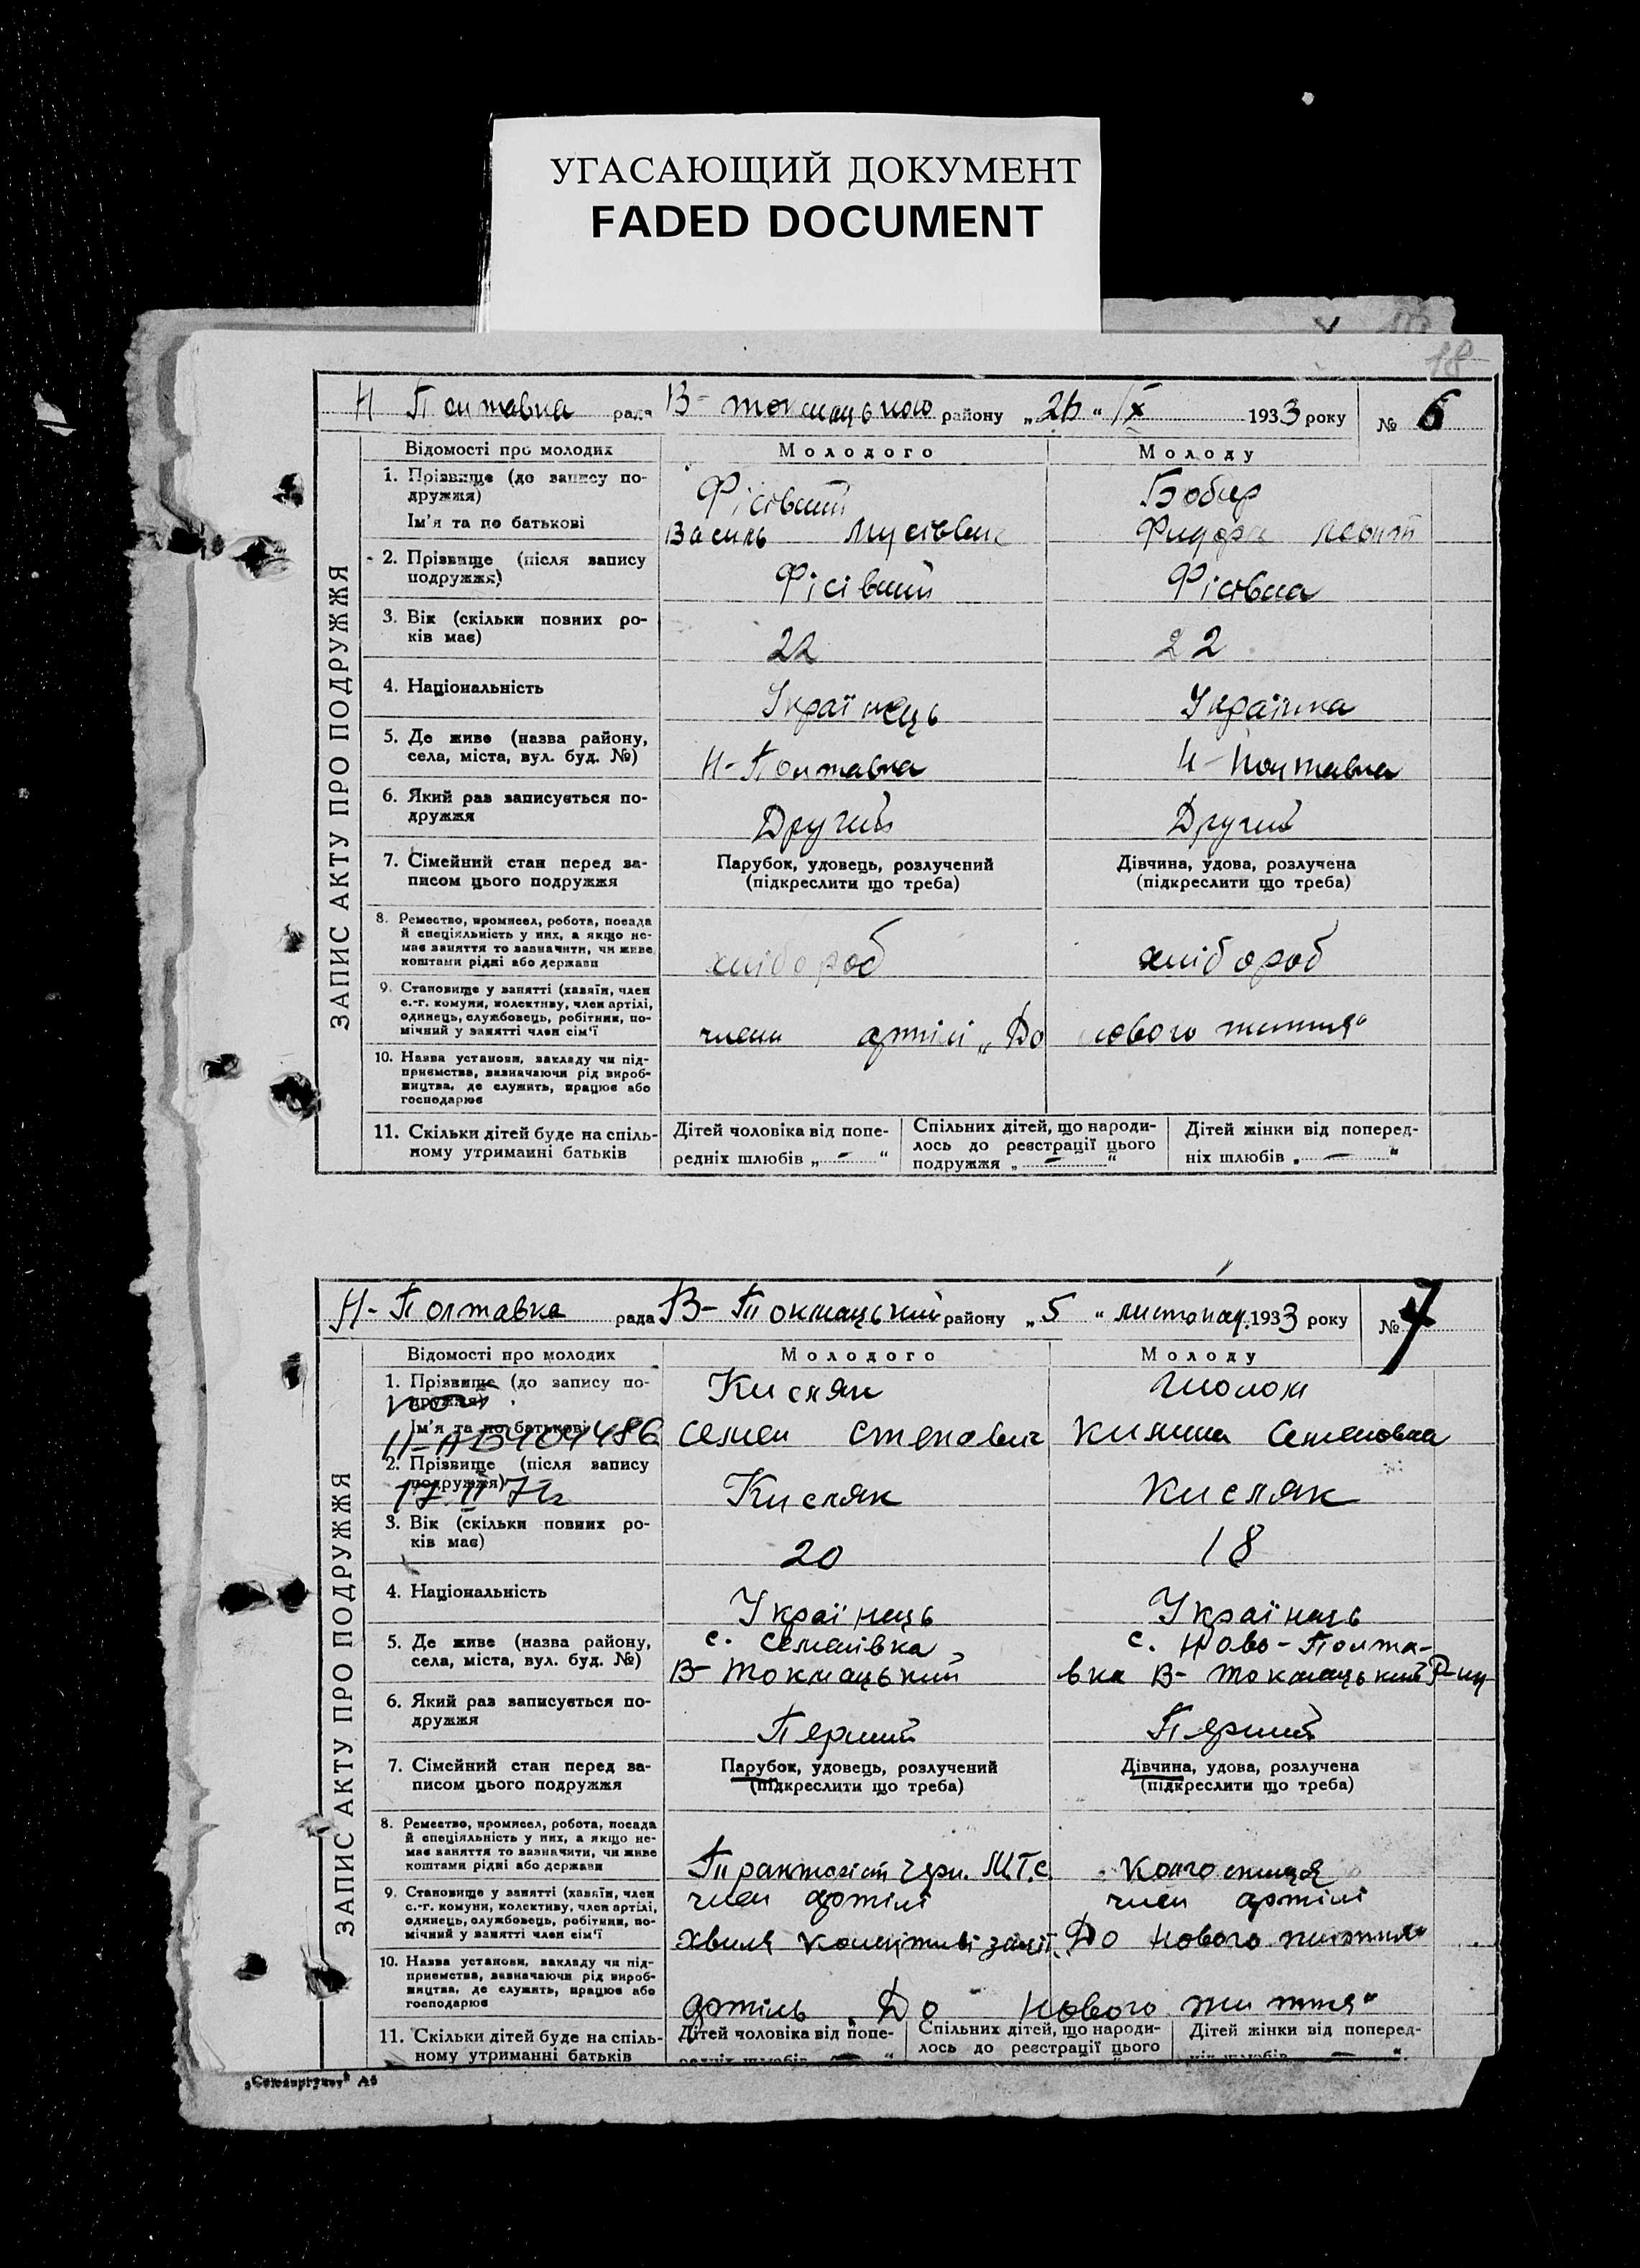 УГАСАЮЩИЙ ДОКУМЕНТ
FADED DOCUMENT
18
ЗАПИС АКТУ ПРО ПОДРУЖЖЯ
Н Полтавка рада В-токмацького району „26“ IX 1933 року № 6
Відомості про молодих Молодого Молоду
1. Прізвище (до запису по-
дружжя) Фісівший Бобир
Ім'я та по батькові Василь Мусієвич
2. Прізвище (після запису
подружжя) Фісівший
3. Вік (скільки повних ро-
ків має) 22 22
4. Національність Українець Українка
5. Де живе (назва району,
села, міста, вул. буд. №) Н-Полтавка Н-Полтавка
6. Який раз записується по-
дружжя Другий Другий
7. Сімейний стан перед за-
писом цього подружжя
Парубок, удовець, розлучений
(підкреслити що треба)
Дівчина, удова, розлучена
(підкреслити що треба)
8. Ремество, промисел, робота, посада
й спеціяльність у них, а якщо не-
має заняття то зазначити, чи живе
коштами рідні або держави
хлібороб хлібороб
9. Становище у занятті (хазяїн, член
с.-г. комуни, колективу, член артілі,
одинець, службовець, робітник, по-
мічний у занятті член сім'ї
члени артілі „До нового життя“
10. Назва установи, закладу чи під-
приємства, зазначаючи рід вироб-
ництва, де служить, працює або
господарює
11. Скільки дітей буде на спіль-
ному утриманні батьків
Дітей чоловіка від попе-
редніх шлюбів „ — “
Спільних дітей, що народи-
лось до реєстрації цього
подружжя „ — “
Дітей жінки від поперед-
ніх шлюбів „ — “
ЗАПИС АКТУ ПРО ПОДРУЖЖЯ
Н-Полтавка рада В-Токмацький району „5“ листопад. 1933 року № 7
Відомості про молодих Молодого Молоду
1. Прізвище (до запису по-
дружжя) Кисляк Шолом
Ім'я та по батькові Семен Степович Килина Семеновна
II-АБ 404486
2. Прізвище (після запису
подружжя) Кисляк Кисляк
17 II 7
3. Вік (скільки повних ро-
ків має) 20 18
4. Національність Українець Українець
5. Де живе (назва району,
села, міста, вул. буд. №)
с. Семенівка
В-Токмацький
с. Ново-Полта-
вка В-Токмацький Р-ну
6. Який раз записується по-
дружжя Перший Перший
7. Сімейний стан перед за-
писом цього подружжя
Парубок, удовець, розлучений
(підкреслити що треба)
Дівчина, удова, розлучена
(підкреслити що треба)
8. Ремество, промисел, робота, посада
й спеціяльність у них, а якщо не-
має заняття то зазначити, чи живе
коштами рідні або держави
Тракторіст Черн. МТС Колгоспниця
9. Становище у занятті (хазяїн, член
с.-г. комуни, колективу, член артілі,
одинець, службовець, робітник, по-
мічний у занятті член сім'ї
член артілі
хвиля колективізації
член артілі
До нового життя“
10. Назва установи, закладу чи під-
приємства, зазначаючи рід вироб-
ництва, де служить, працює або
господарює
артіль „До нового життя“
11. Скільки дітей буде на спіль-
ному утриманні батьків
Дітей чоловіка від попе-
редніх шлюбів — “
Спільних дітей, що народи-
лось до реєстрації цього
Дітей жінки від поперед-
ніх шлюбів — “